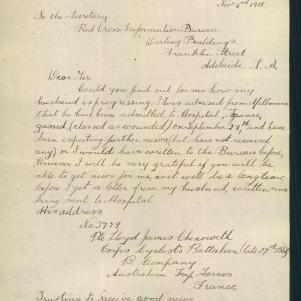 Nov 2nd 1918
To the Secretary
Red Cross Information Bureau
Darling Buildings
Franklin Street
Adelaide S. A.
Dear Sir
Could you find out for me how my
husband is progressing. I was advised from Melbourne
that he had been admitted to Hospital, France,
gassed (classed as wounded) on September 29th and have
been expecting further news (but have not received
any) or I would have written to the Bureau before.
However I will be very grateful if you will be
able to get news for me as it will be a long time
before I get a letter from my husband, written since
being sent to Hospital
His address
No. 3779
Pte Lloyd James Chenoweth
Corps Cyclist Battalion (late 27th Batt)
B Company
Australian Imp Forces
France
Trusting to receive good news